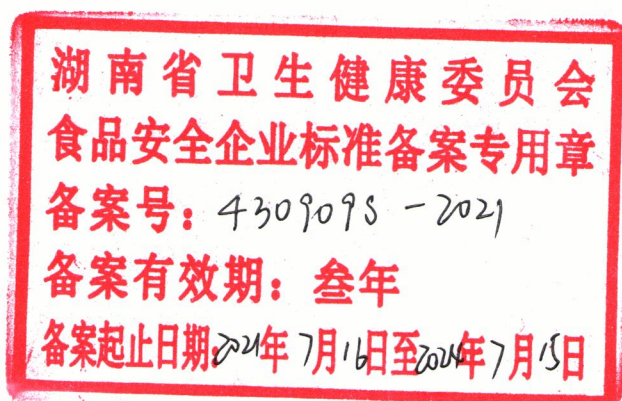 湖南省卫生健康委员会
食品安全企业标准备案专用章
备案号：430909S-2021
备案有效期：叁年
备案起止日期2021年7月16日至2024年7月15日